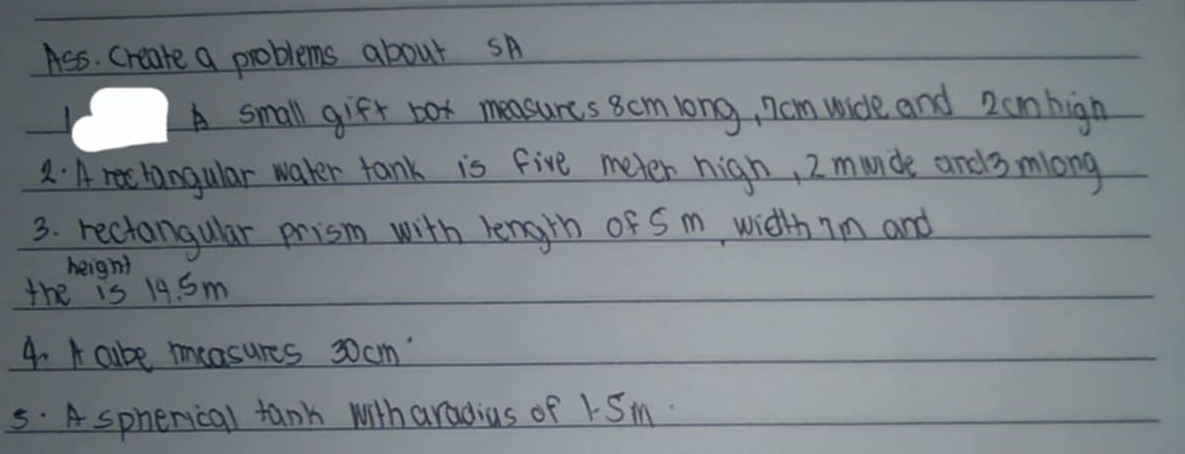 Ass. Create a problems about SA
1. A small gift box measures 8cm long, 7cm wide and 2cm high
2. A rectangular water tank is five meter high, 2 m wide and 3 m long
3. rectangular prism with length of 5 m, width 7m and
height
the is 14.5m
4. A cube measures 30cm.
5. A spherical tank with a radius of 1.5m.